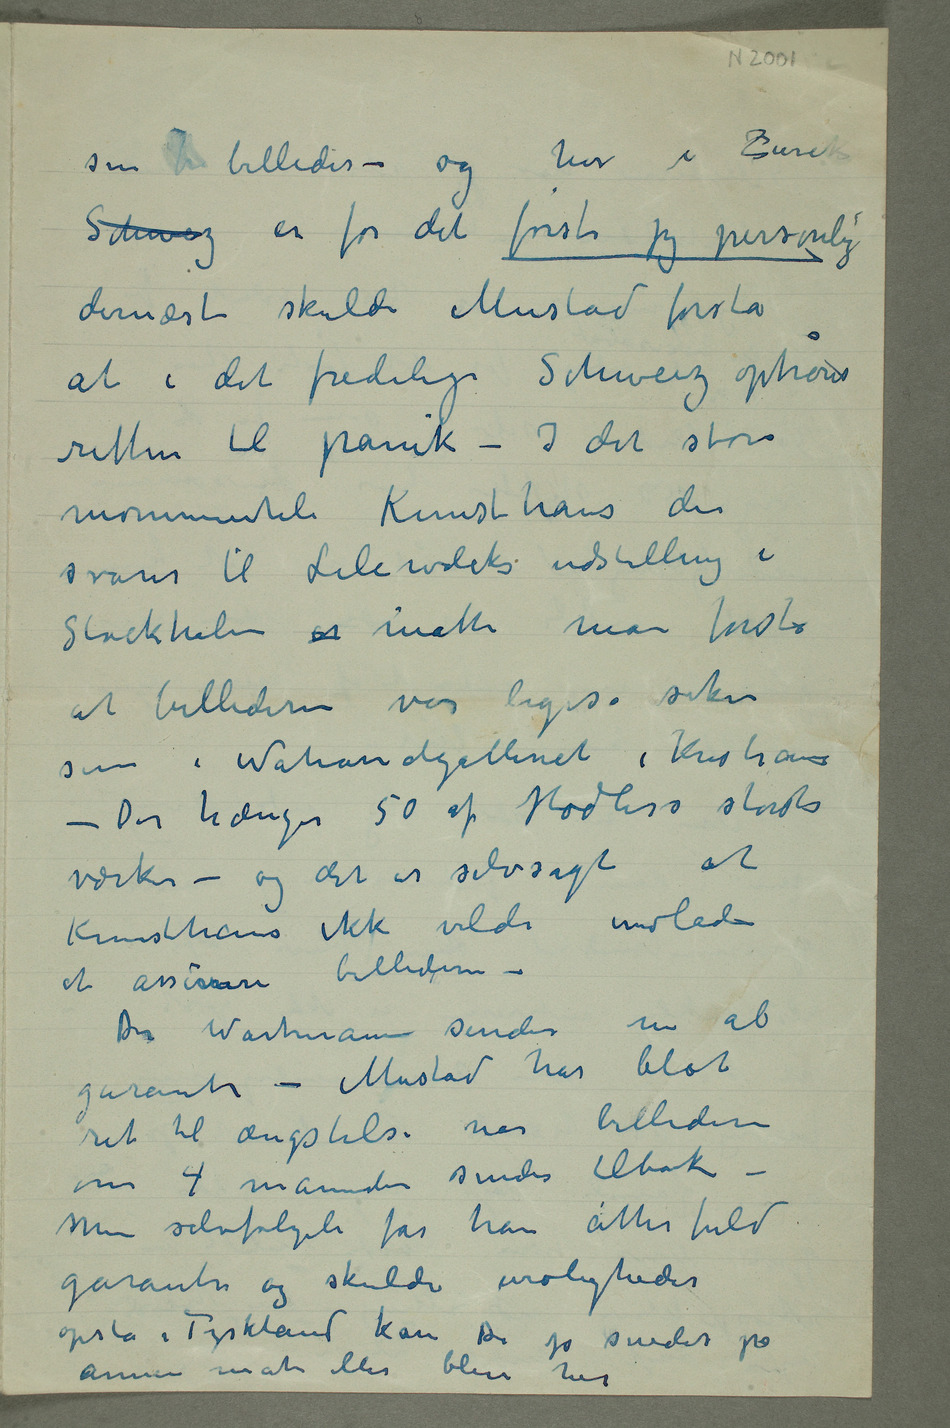 N 2001
sin billeder – og her i Zurich
Schweiz er for det første jeg personlig
dernæst skulde Mustad forstå
at i det fredelige Schweiz ophører
retten til panik – I det store
monumentale Kunsthaus der
svarer til Liljewalchs udstilling i
Stockholm er måtte man forstå
at billederne var ligeså sikre
som i Nationalgalleriet i Kristiania
– Der hænger 50 af Hodlers største
værker – og det er selvsagt at
Kunsthaus ikke vilde indlade
at assurere billederne –
Dr Wartmann sender nu al
garanti – Mustad har blot
ret til ængstelse når billederne
om 4 måneder sendes tilbake –
Men selvfølgeli får han atter fuld
garanti og skulde uroligheder
opstå i Tyskland kan De jo sendes på
annen måte eller blive her